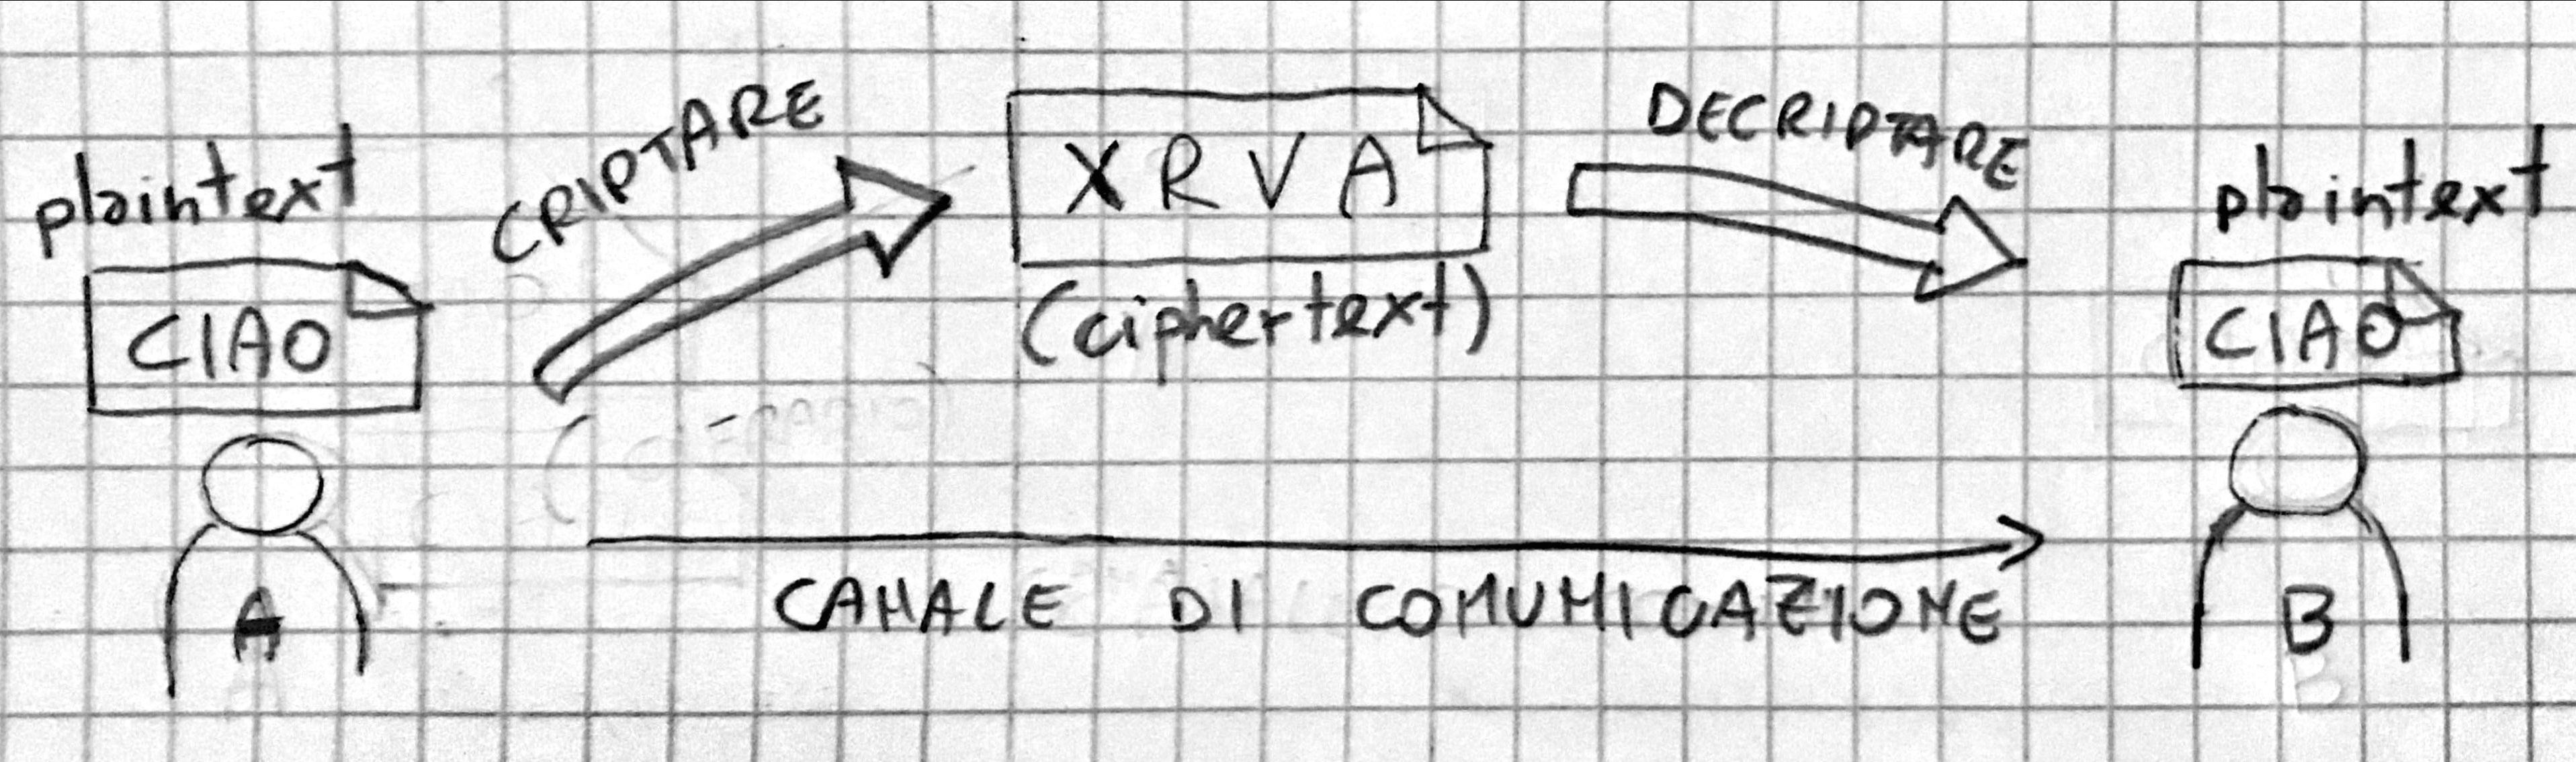 plaintext
CIAO
A
CRIPTARE
XRVA
(ciphertext)
DECRIPTARE
plaintext
CIAO
B
CANALE DI COMUNICAZIONE